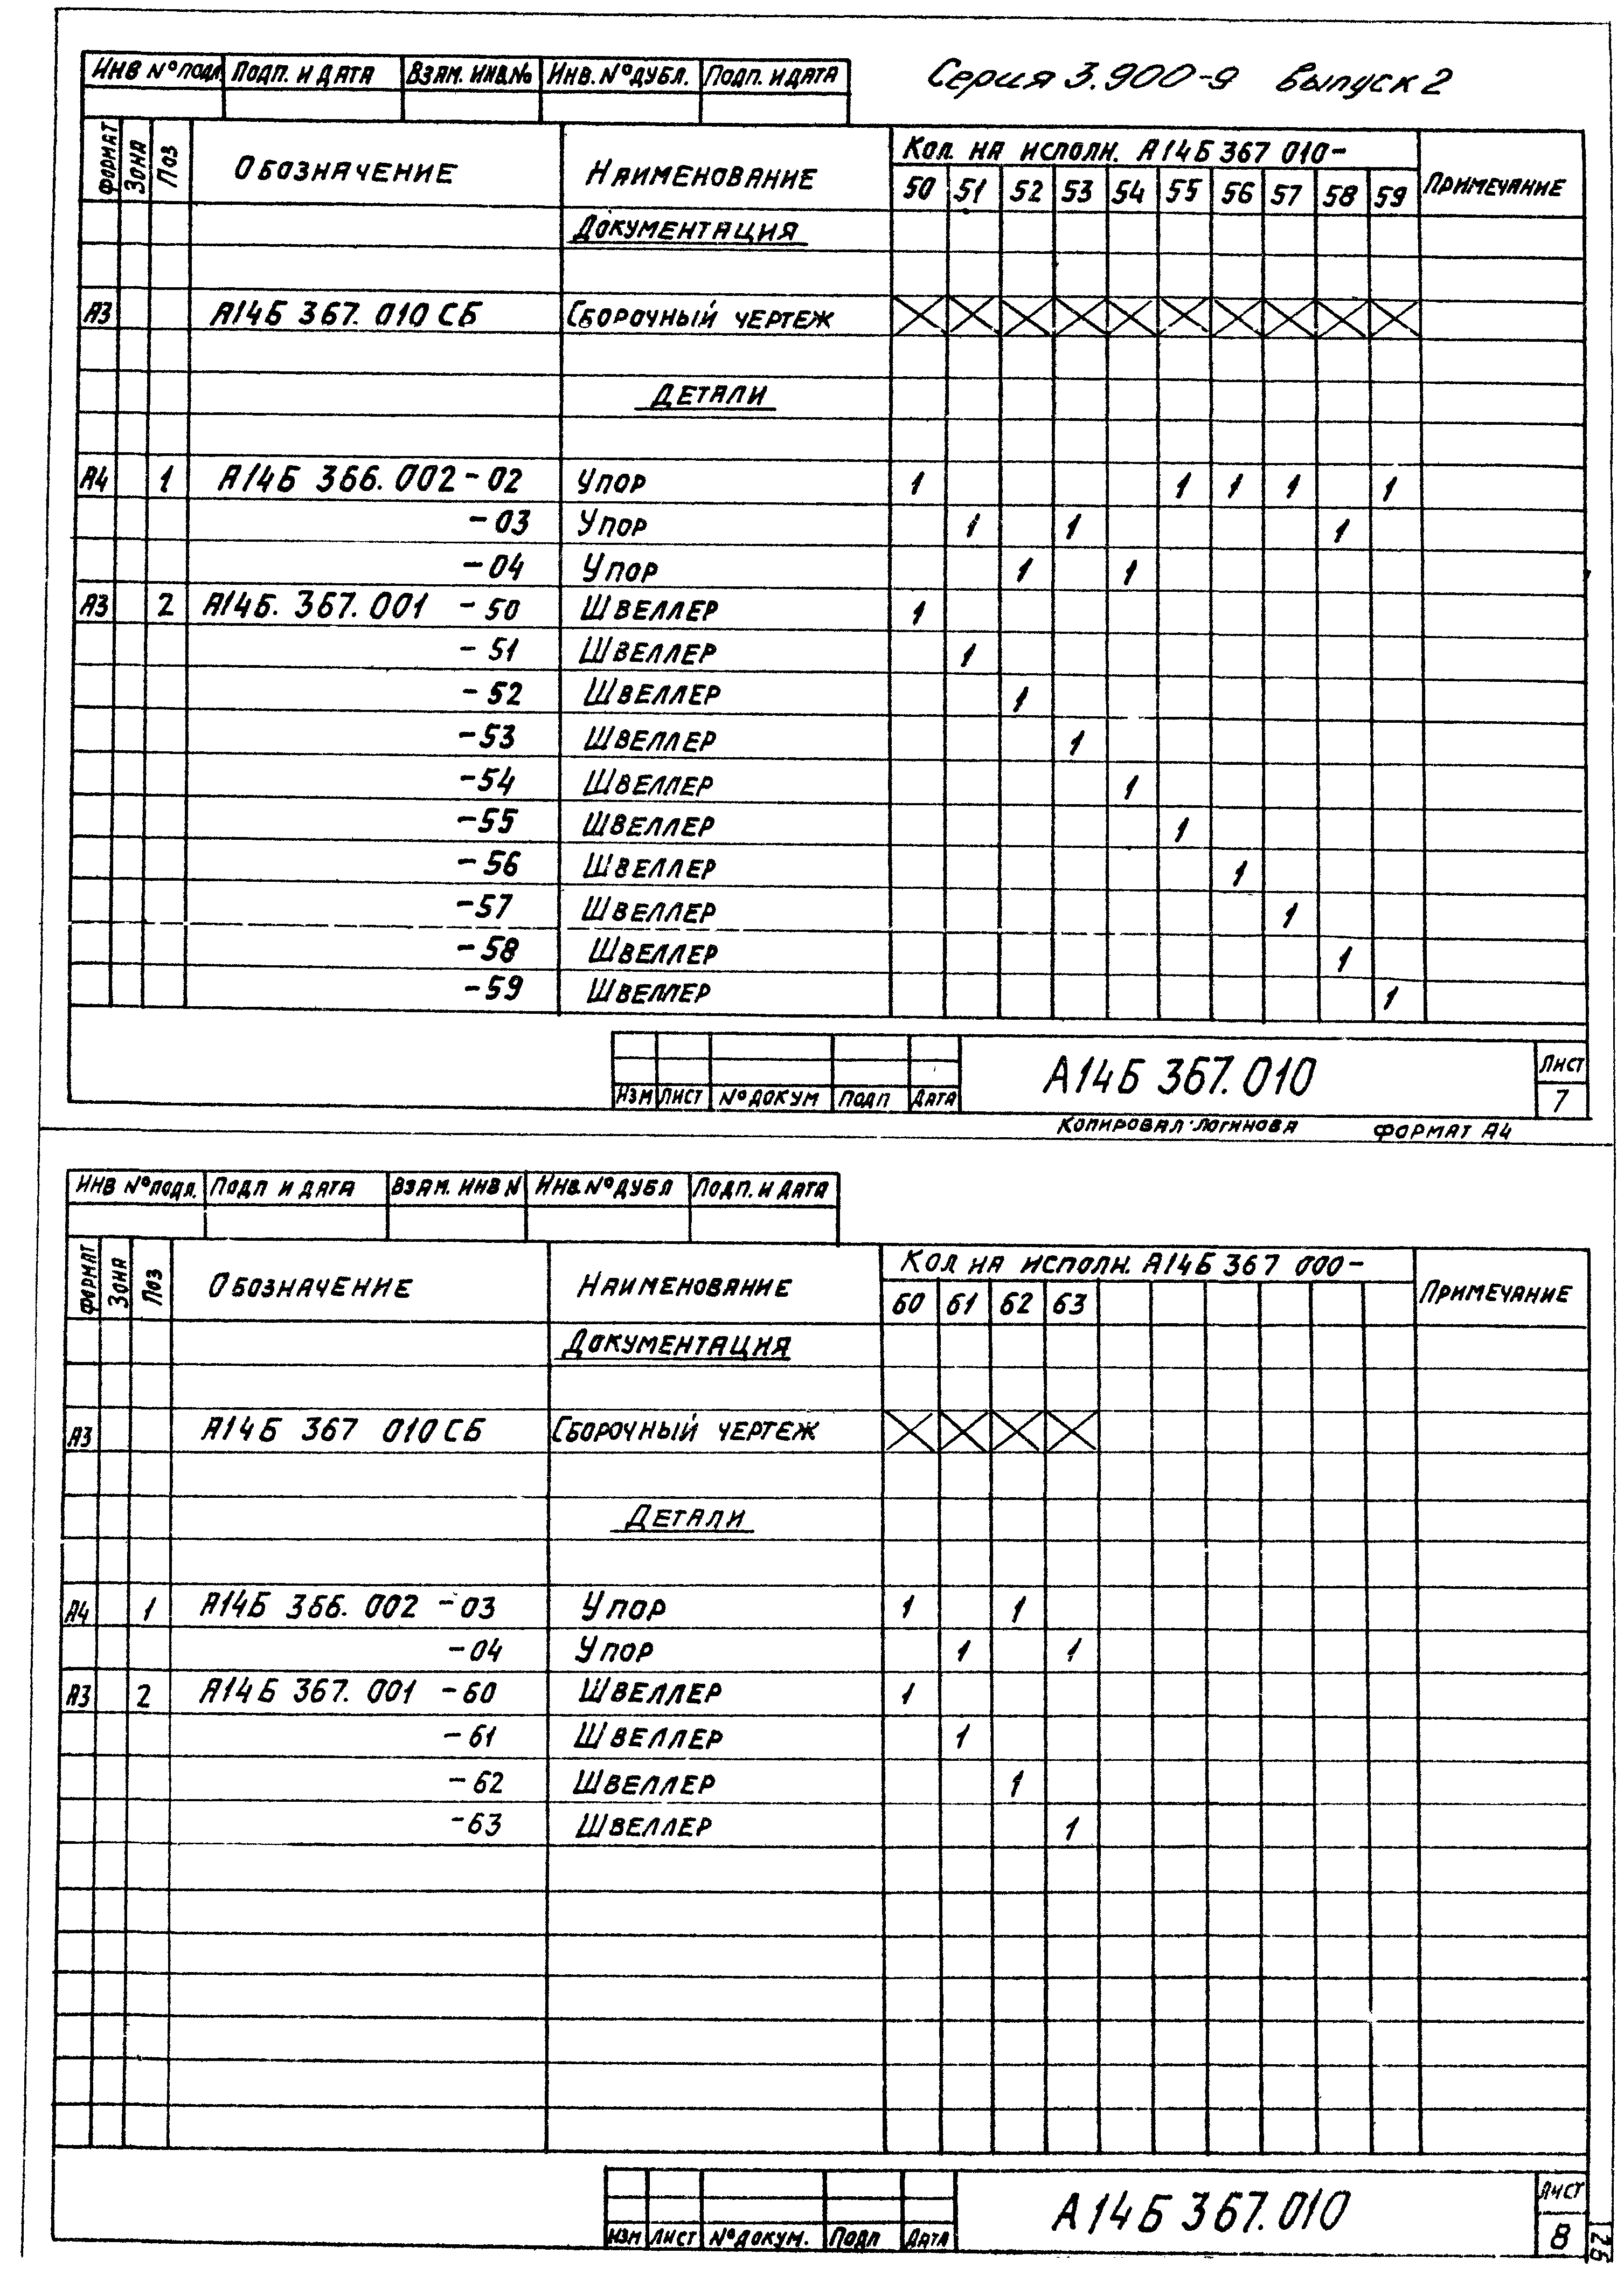 Серия 3.900-9 выпуск 2
Инв № подл. Подп. и дата Взам. инв.№ Инв. № дубл. Подп. и дата
Формат Зона Поз Обозначение Наименование Кол. на исполн. А14Б 367 010- Примечание
50 51 52 53 54 55 56 57 58 59
Документация
А3 А14Б 367. 010 СБ Сборочный чертеж
Детали
А4 1 А14Б 366.002-02 Упор 1 1 1 1 1
-03 Упор 1 1 1
-04 Упор 1 1
А3 2 А14Б. 367.001 -50 Швеллер 1
-51 Швеллер 1
-52 Швеллер 1
-53 Швеллер 1
-54 Швеллер 1
-55 Швеллер 1
-56 Швеллер 1
-57 Швеллер 1
-58 Швеллер 1
-59 Швеллер 1
Изм Лист № докум Подп Дата А14Б 367.010 Лист 7
Копировал: Логинова Формат А4
Инв № подл. Подп и дата Взам. инв N Инв. № дубл Подп. и дата
Формат Зона Поз Обозначение Наименование Кол на исполн. А14Б 367 000- Примечание
60 61 62 63
Документация
А3 А14Б 367 010 СБ Сборочный чертеж
Детали
А4 1 А14Б 366. 002 -03 Упор 1 1
-04 Упор 1 1
А3 2 А14Б 367. 001 -60 Швеллер 1
-61 Швеллер 1
-62 Швеллер 1
-63 Швеллер 1
Изм Лист № докум. Подп Дата А14Б 367.010 Лист 8